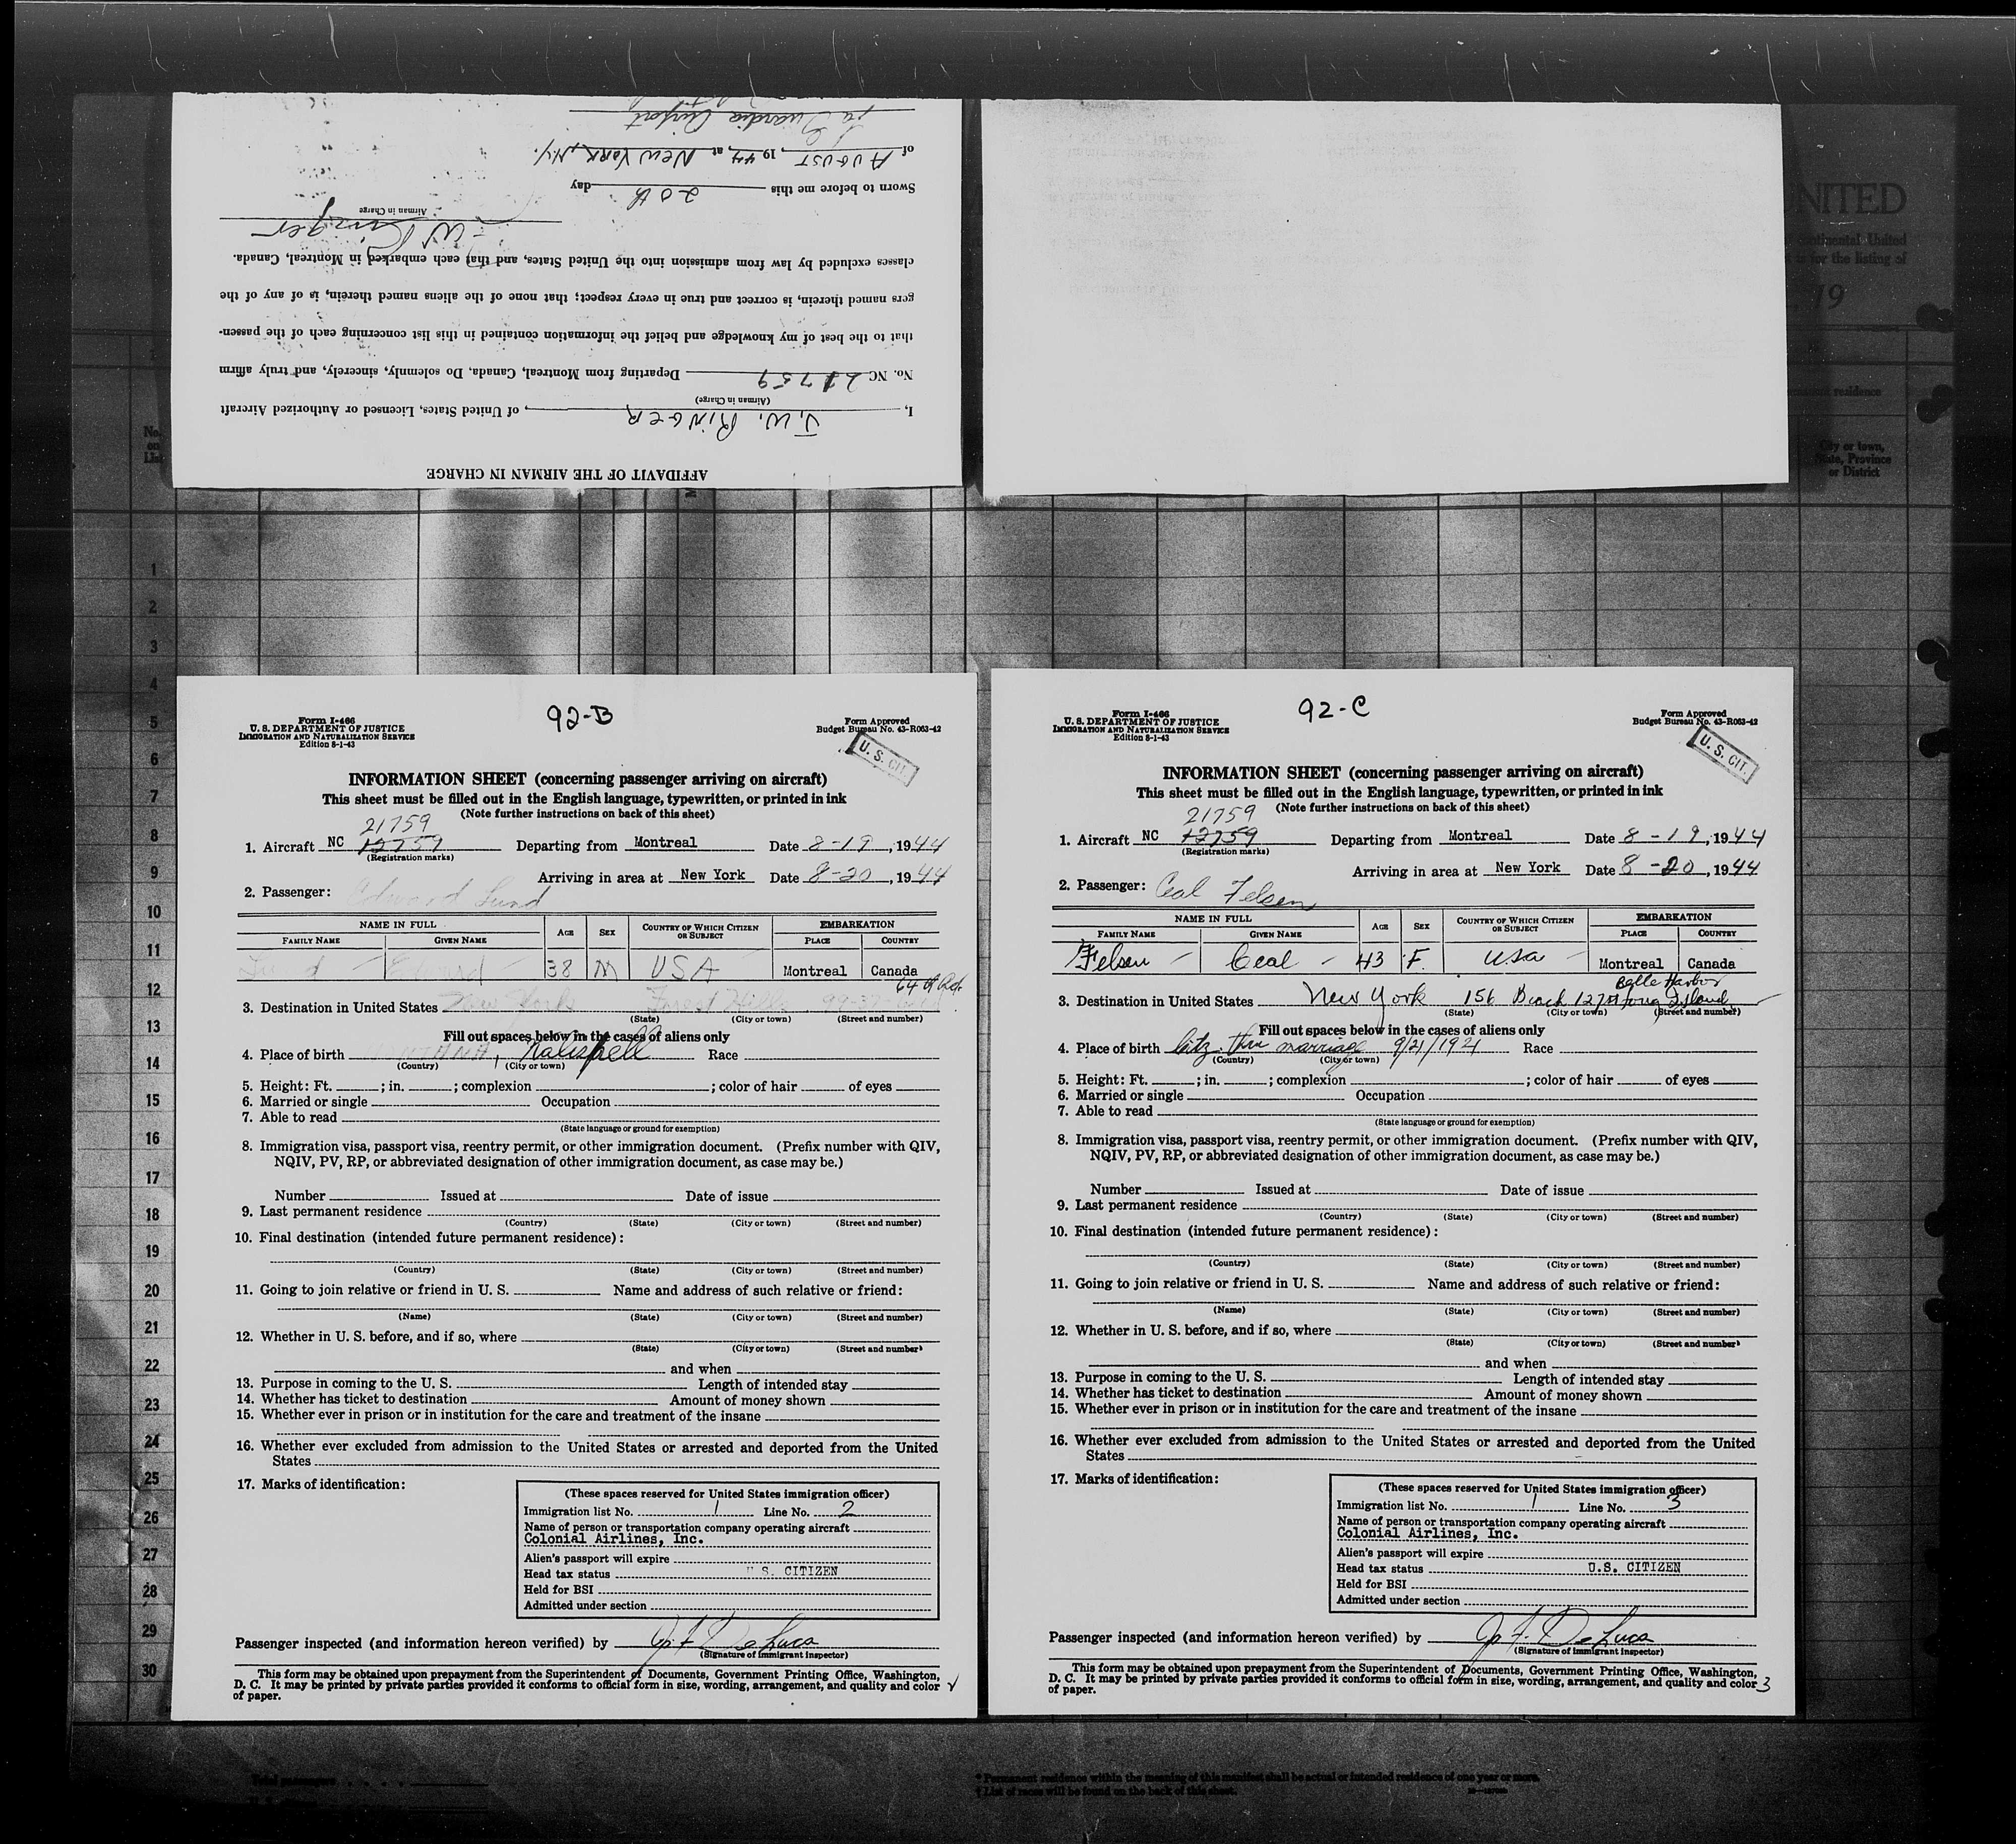 AFFIDAVIT OF THE AIRMAN IN CHARGE
I, J.W. RINGER, of United States, Licensed or Authorized Aircraft
(Airman in Charge)
No. NC 21759 Departing from Montreal, Canada, Do solemnly, sincerely, and truly affirm
that to the best of my knowledge and belief the information contained in this list concerning each of the passen-
gers named therein, is correct and true in every respect; that none of the aliens named therein, is of any of the
classes excluded by law from admission into the United States, and that each embarked in Montreal, Canada.
J W Ringer
Airman in Charge
Sworn to before me this 20th day
of AUGUST, 1944, at NEW YORK, N.Y.
La Guardia Airport
UNITED
continental United
for the listing of
19
residence
No. on List
City or town, State, Province or District
1
2
3
4
5
6
7
8
9
10
11
12
13
14
15
16
17
18
19
20
21
22
23
24
25
26
27
28
29
30
92-B
Form I-466
U. S. DEPARTMENT OF JUSTICE
IMMIGRATION AND NATURALIZATION SERVICE
Edition 8-1-43
Form Approved
Budget Bureau No. 43-R063-42
U. S. CIT.
INFORMATION SHEET (concerning passenger arriving on aircraft)
This sheet must be filled out in the English language, typewritten, or printed in ink
(Note further instructions on back of this sheet)
21759
1. Aircraft NC 12759 Departing from Montreal Date 8-19, 1944
(Registration marks)
Arriving in area at New York Date 8-20, 1944
2. Passenger: Edward Lund
NAME IN FULL AGE SEX COUNTRY OF WHICH CITIZEN OR SUBJECT EMBARKATION
FAMILY NAME GIVEN NAME PLACE COUNTRY
Lund Edward 38 M USA Montreal Canada
64th Rd.
3. Destination in United States New York Forest Hills
(State) (City or town) (Street and number)
Fill out spaces below in the cases of aliens only
4. Place of birth MONTANA, Kalispell Race
(Country) (City or town)
5. Height: Ft. ; in. ; complexion ; color of hair of eyes
6. Married or single Occupation
7. Able to read
(State language or ground for exemption)
8. Immigration visa, passport visa, reentry permit, or other immigration document. (Prefix number with QIV,
NQIV, PV, RP, or abbreviated designation of other immigration document, as case may be.)
Number Issued at Date of issue
9. Last permanent residence
(Country) (State) (City or town) (Street and number)
10. Final destination (intended future permanent residence):
(Country) (State) (City or town) (Street and number)
11. Going to join relative or friend in U. S. Name and address of such relative or friend:
(Name) (State) (City or town) (Street and number)
12. Whether in U. S. before, and if so, where
(State) (City or town) (Street and number)
and when
13. Purpose in coming to the U. S. Length of intended stay
14. Whether has ticket to destination Amount of money shown
15. Whether ever in prison or in institution for the care and treatment of the insane
16. Whether ever excluded from admission to the United States or arrested and deported from the United
States
17. Marks of identification:
(These spaces reserved for United States immigration officer)
Immigration list No. 1 Line No. 2
Name of person or transportation company operating aircraft
Colonial Airlines, Inc.
Alien's passport will expire
Head tax status U.S. CITIZEN
Held for BSI
Admitted under section
Passenger inspected (and information hereon verified) by J. F. DeLuca
(Signature of immigrant inspector)
This form may be obtained upon prepayment from the Superintendent of Documents, Government Printing Office, Washington,
D. C. It may be printed by private parties provided it conforms to official form in size, wording, arrangement, and quality and color
of paper.
92-C
Form I-466
U. S. DEPARTMENT OF JUSTICE
IMMIGRATION AND NATURALIZATION SERVICE
Edition 8-1-43
Form Approved
Budget Bureau No. 43-R063-42
U. S. CIT.
INFORMATION SHEET (concerning passenger arriving on aircraft)
This sheet must be filled out in the English language, typewritten, or printed in ink
(Note further instructions on back of this sheet)
21759
1. Aircraft NC 12759 Departing from Montreal Date 8-19, 1944
(Registration marks)
Arriving in area at New York Date 8-20, 1944
2. Passenger: Ceal Felsen
NAME IN FULL AGE SEX COUNTRY OF WHICH CITIZEN OR SUBJECT EMBARKATION
FAMILY NAME GIVEN NAME PLACE COUNTRY
Felsen Ceal 43 F. USA Montreal Canada
Belle Harbor
3. Destination in United States New York 156 Beach 127 St Long Island
(State) (City or town) (Street and number)
Fill out spaces below in the cases of aliens only
4. Place of birth Citz. thru marriage 9/21/1921 Race
(Country) (City or town)
5. Height: Ft. ; in. ; complexion ; color of hair of eyes
6. Married or single Occupation
7. Able to read
(State language or ground for exemption)
8. Immigration visa, passport visa, reentry permit, or other immigration document. (Prefix number with QIV,
NQIV, PV, RP, or abbreviated designation of other immigration document, as case may be.)
Number Issued at Date of issue
9. Last permanent residence
(Country) (State) (City or town) (Street and number)
10. Final destination (intended future permanent residence):
(Country) (State) (City or town) (Street and number)
11. Going to join relative or friend in U. S. Name and address of such relative or friend:
(Name) (State) (City or town) (Street and number)
12. Whether in U. S. before, and if so, where
(State) (City or town) (Street and number)
and when
13. Purpose in coming to the U. S. Length of intended stay
14. Whether has ticket to destination Amount of money shown
15. Whether ever in prison or in institution for the care and treatment of the insane
16. Whether ever excluded from admission to the United States or arrested and deported from the United
States
17. Marks of identification:
(These spaces reserved for United States immigration officer)
Immigration list No. 1 Line No. 3
Name of person or transportation company operating aircraft
Colonial Airlines, Inc.
Alien's passport will expire
Head tax status U.S. CITIZEN
Held for BSI
Admitted under section
Passenger inspected (and information hereon verified) by J. F. DeLuca
(Signature of immigrant inspector)
This form may be obtained upon prepayment from the Superintendent of Documents, Government Printing Office, Washington,
D. C. It may be printed by private parties provided it conforms to official form in size, wording, arrangement, and quality and color 3
of paper.
* Permanent residence within the meaning of this manifest shall be actual or intended residence of one year or more.
† List of races will be found on the back of this sheet.